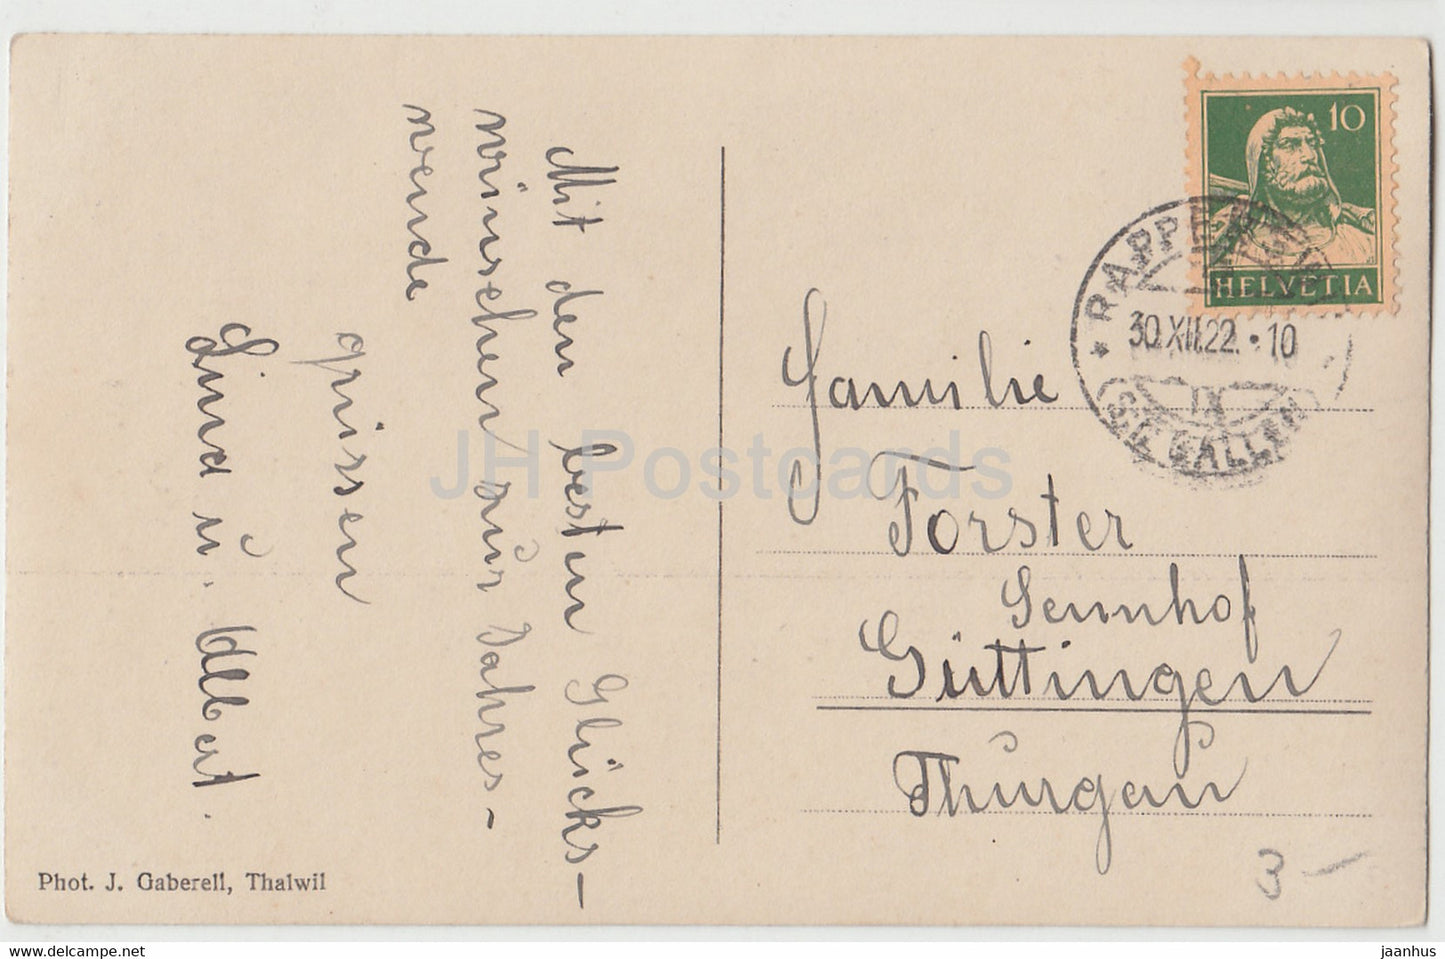 Mit den besten Glücks-
wünschen zur Jahres-
wende
grüssen
Lina u. Albert.
Phot. J. Gaberell, Thalwil
10
HELVETIA
30.XII.22.•10
IX
(ST. GALLEN)
Familie
Forster
Sennhof
Güttingen
Thurgau
3 –
JH Postcards
www.delcampe.net
jaanhus